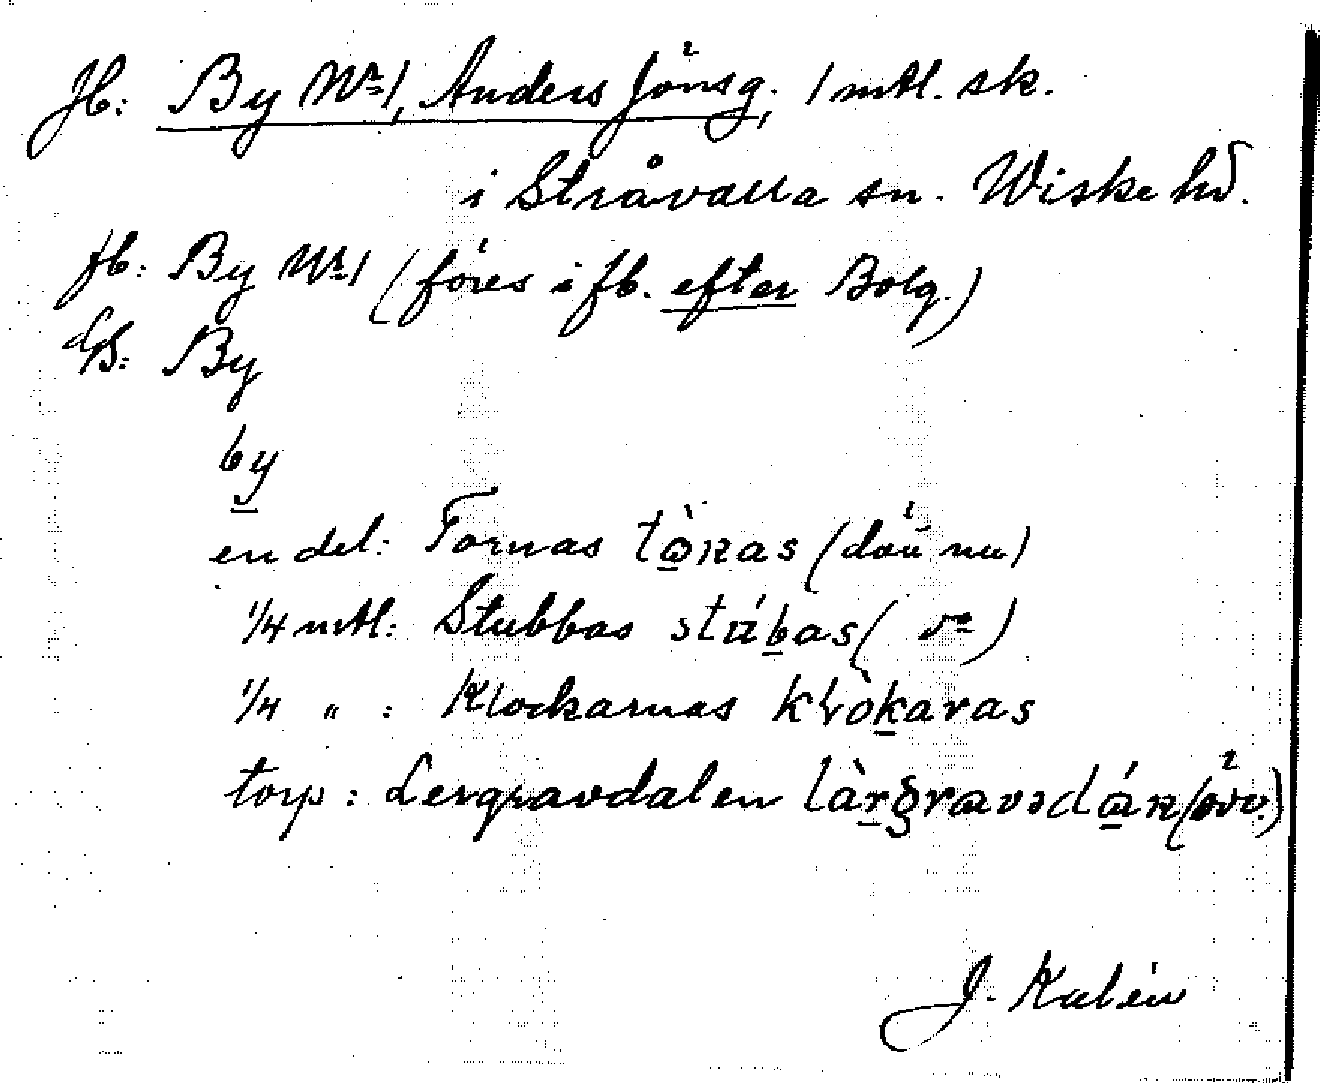 Jb: By No 1, Anders Jönsg. 1 mtl. sk.
i Stråvalla sn. Wiske hd.
fb: By No 1 (föres i fb. efter Bolg.)
GS: By
by
en del: Tornas tò̱nas (död nu)
1/4 mtl: Stubbas stúḇas ( do )
1/4 " : Klockarnas klòḵaras
torp: Lergravdalen
J. Kalén